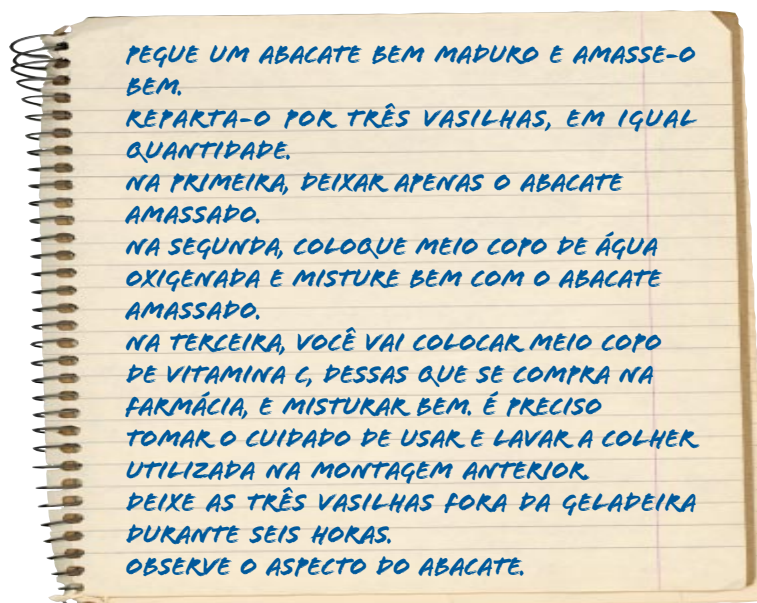 PEGUE UM ABACATE BEM MADURO E AMASSE-O
BEM.
REPARTA-O POR TRÊS VASILHAS, EM IGUAL
QUANTIDADE.
NA PRIMEIRA, DEIXAR APENAS O ABACATE
AMASSADO.
NA SEGUNDA, COLOQUE MEIO COPO DE ÁGUA
OXIGENADA E MISTURE BEM COM O ABACATE
AMASSADO.
NA TERCEIRA, VOCÊ VAI COLOCAR MEIO COPO
DE VITAMINA C, DESSAS QUE SE COMPRA NA
FARMÁCIA, E MISTURAR BEM. É PRECISO
TOMAR O CUIDADO DE USAR E LAVAR A COLHER
UTILIZADA NA MONTAGEM ANTERIOR.
DEIXE AS TRÊS VASILHAS FORA DA GELADEIRA
DURANTE SEIS HORAS.
OBSERVE O ASPECTO DO ABACATE.